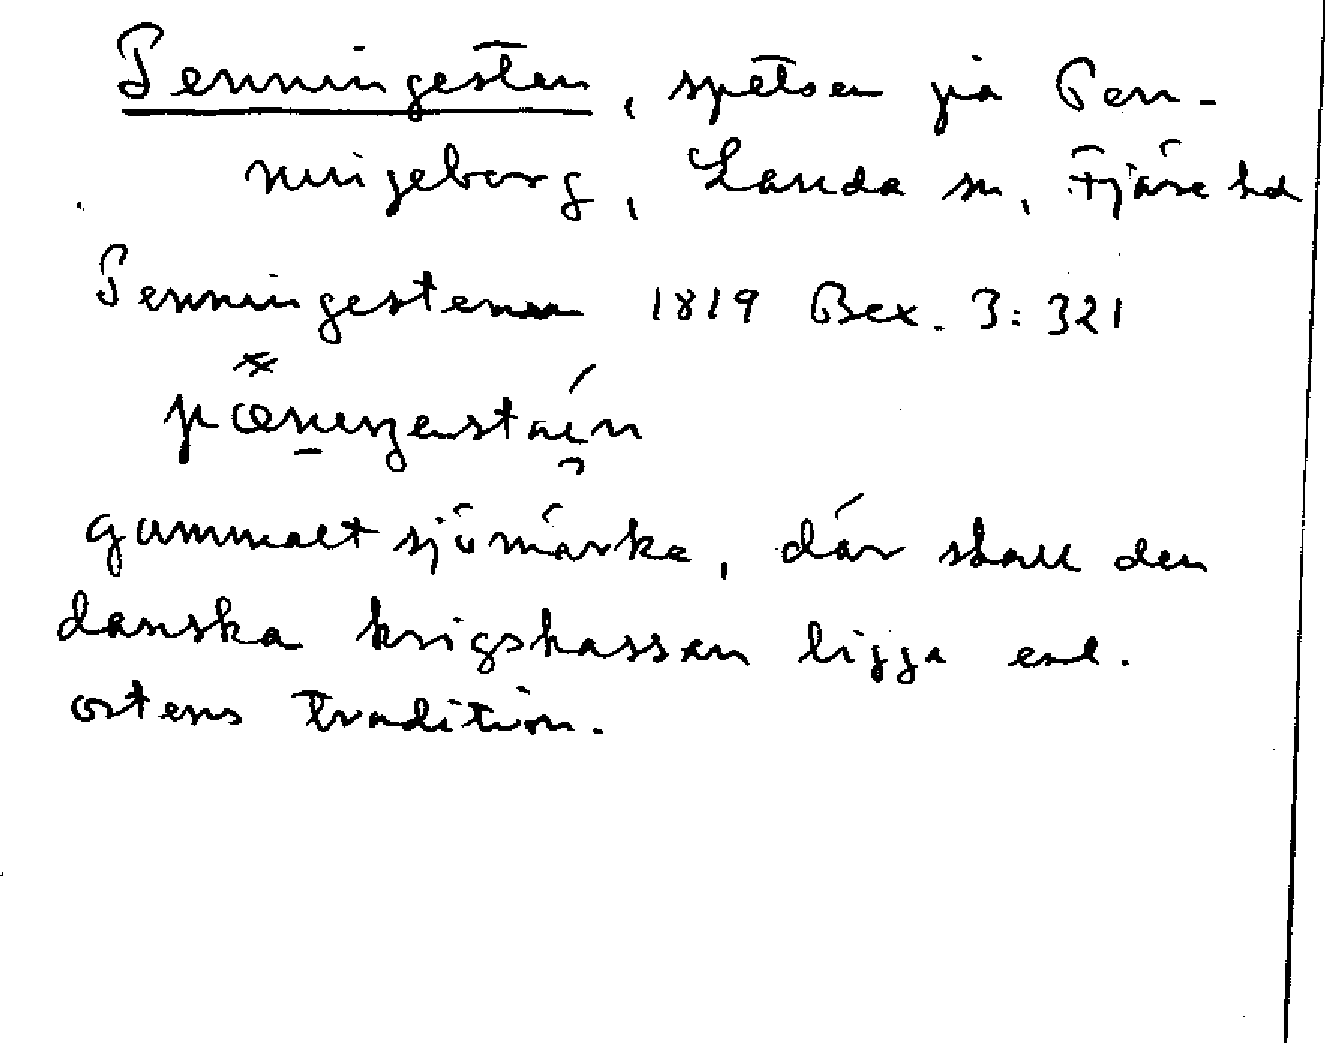 Penningesten, spetsen på Pen-
ningeborg, Landa sn, Fjäre hd
Penningestenen 1819 Bex. 3:321
gammalt sjömärke, där skall den
danska krigskassan ligga enl.
ortens tradition.